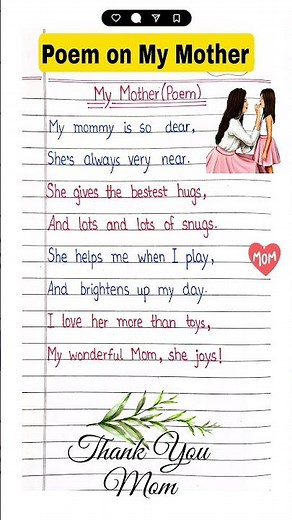 Poem on My Mother
My Mother (Poem)
My mommy is so dear,
She's always very near.
She gives the bestest hugs,
And lots and lots of snugs.
She helps me when I play,
MOM
And brightens up my day.
I love her more than toys,
My wonderful Mom, she joys!
Thank You
Mom